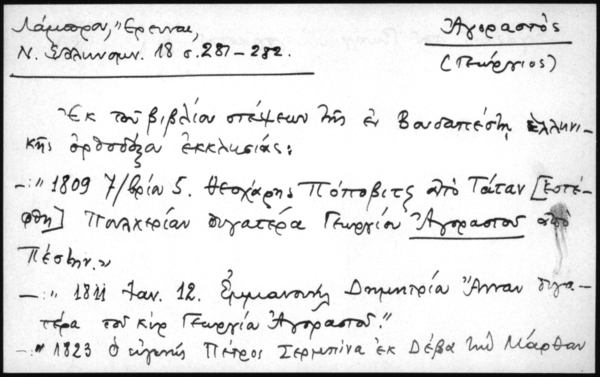 Λάμπρου, "Έρευναι,
Ν. Ἑλληνομν. 18 σ. 281-282.
Ἀγοραστός
(Γεώργιος)
Ἐκ τοῦ βιβλίου στέψεων τῆς ἐν Βουδαπέστῃ ἑλληνι-
κῆς ὀρθοδόξου ἐκκλησίας:
—:" 1809 7/βρίᾳ 5. Θεοχάρης Πόποβιτς ἀπὸ Τάταν [ἐστέ-
φθη] Πουλχερίαν θυγατέρα Γεωργίου Ἀγοραστοῦ ἀπὸ
Πέστην."
—:" 1811 Ἰαν. 12. Ἐμμανουὴλ Δημητρίᾳ Ἄνναν θυγα-
τέρα τοῦ κὺρ Γεωργίᾳ Ἀγοραστοῦ."
—:" 1823 ὁ εὐγενὴς Πέτρος Σερμπίνα ἐκ Δέβα τὴν Μάρθαν